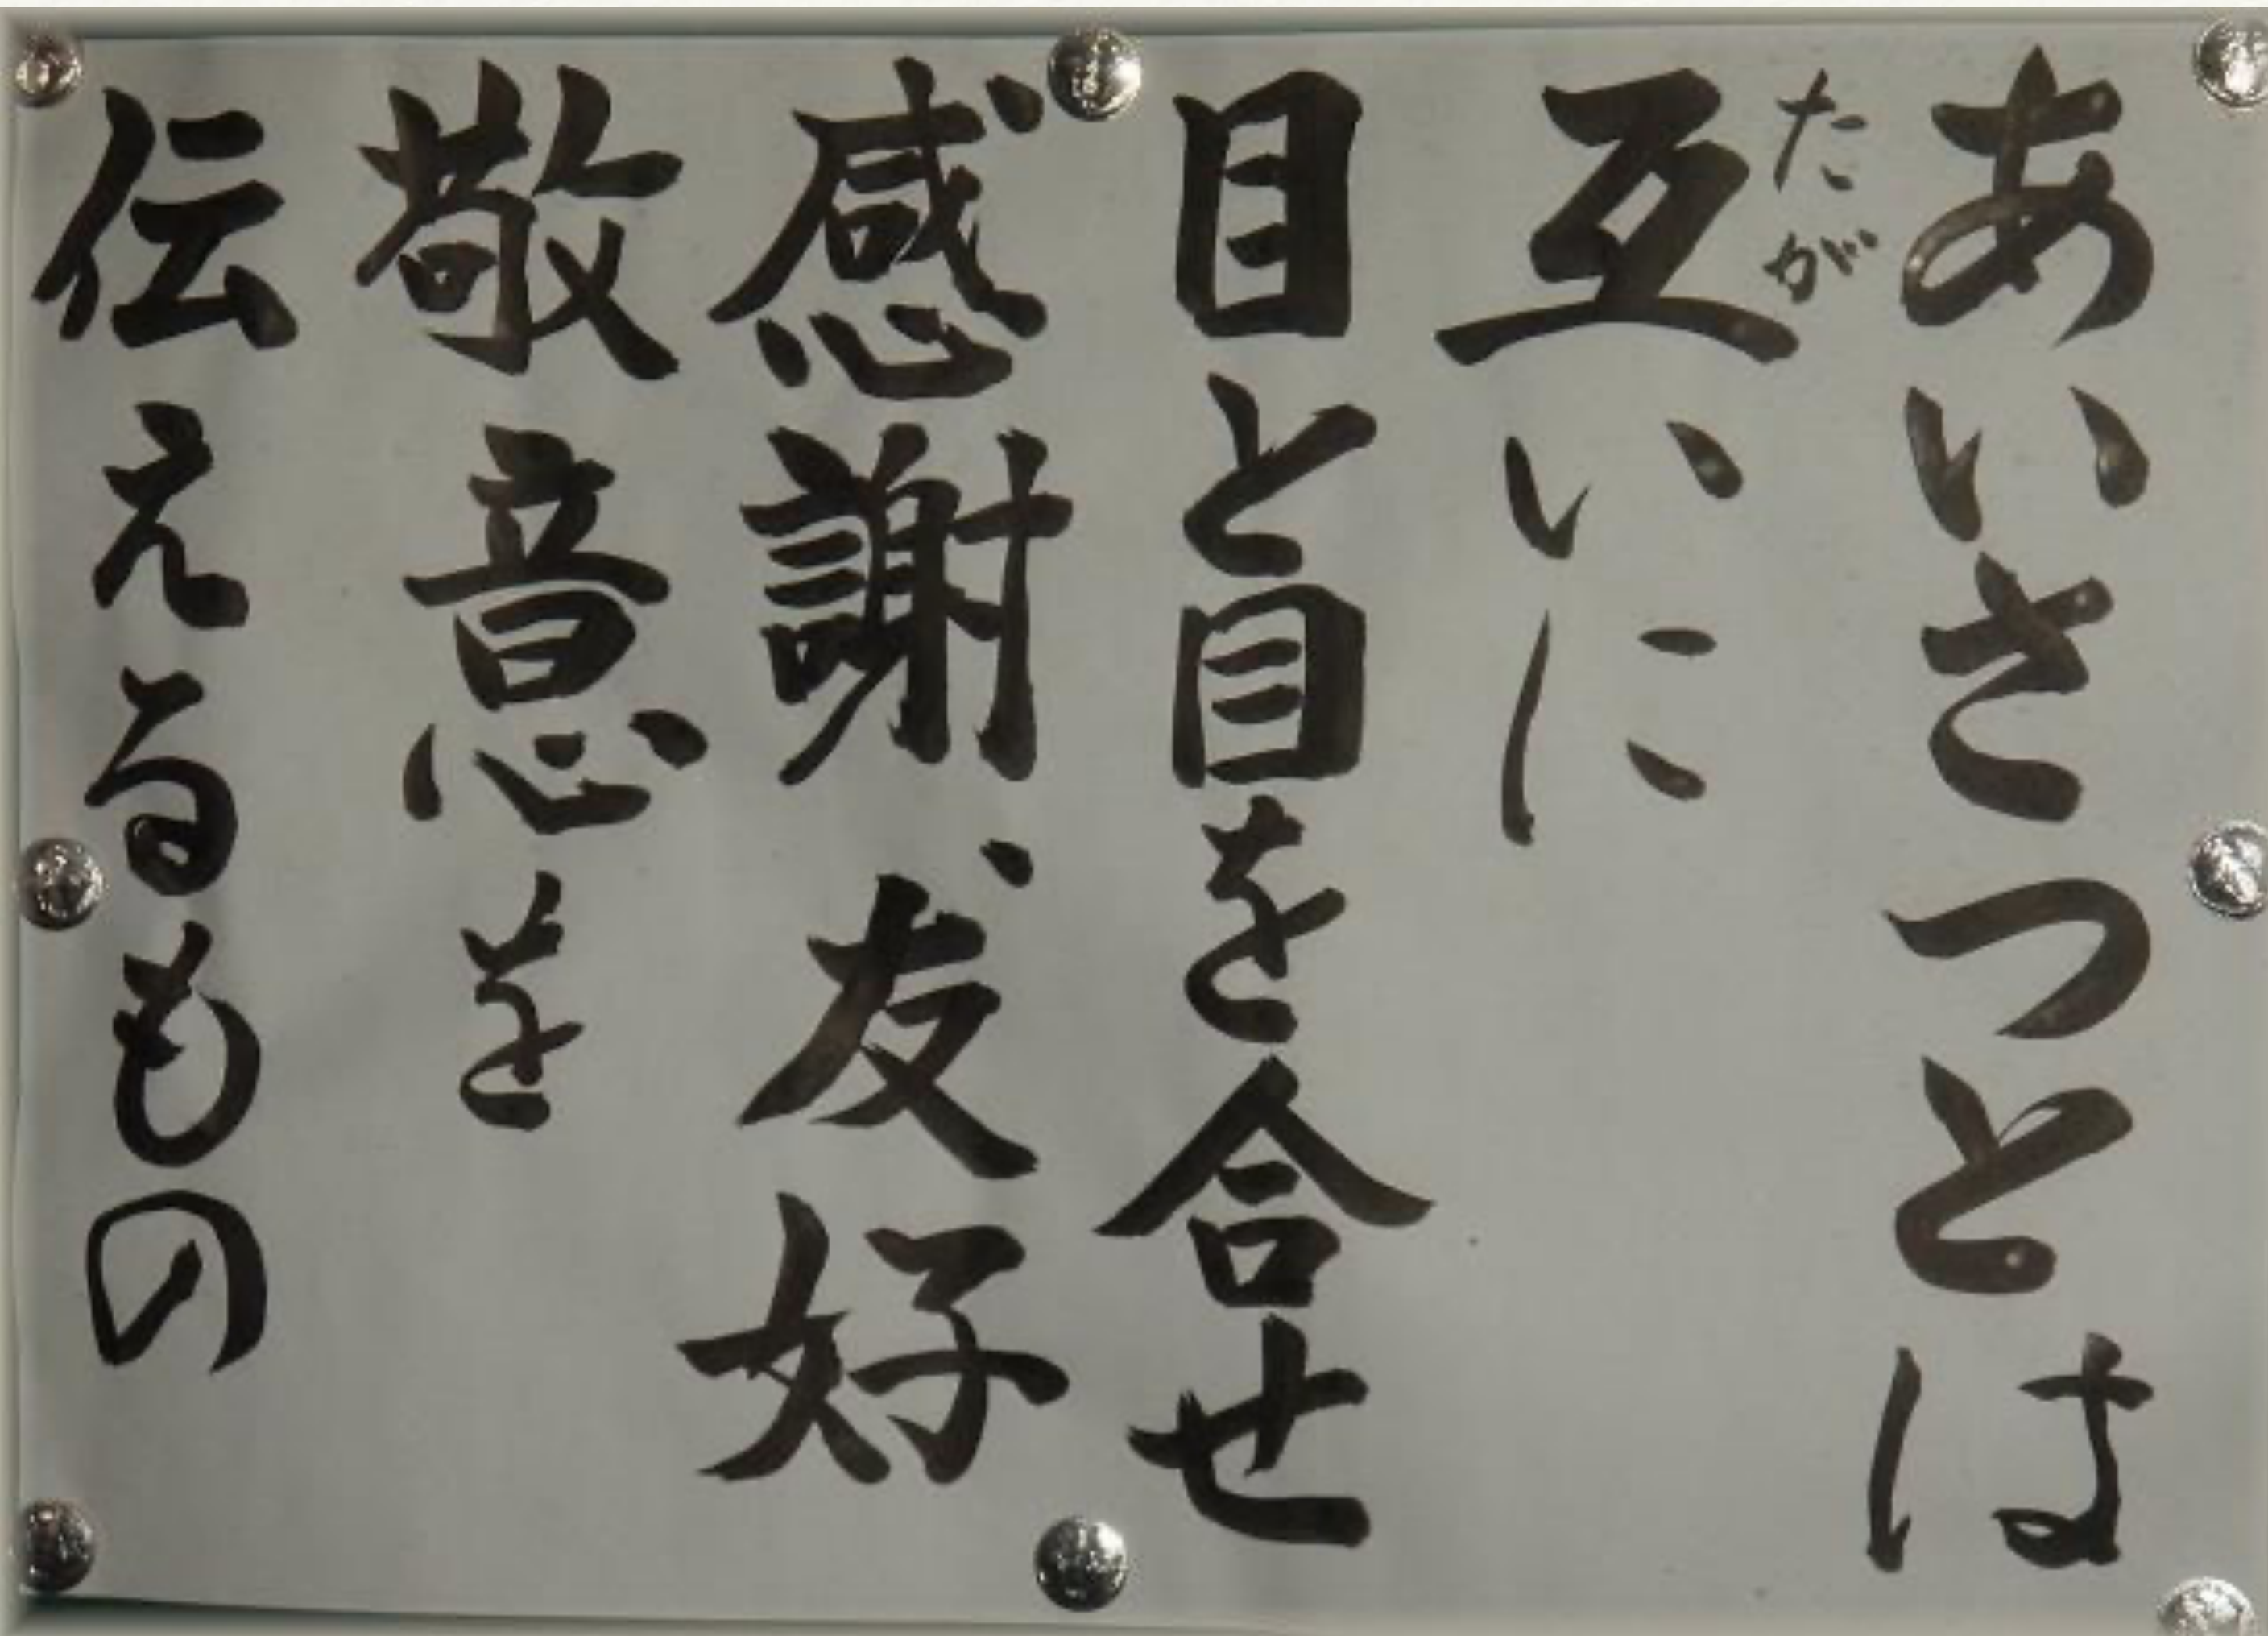 あいさつとは
互いに
たが
目と目を合せ
感謝、友好
敬意を
伝えるもの